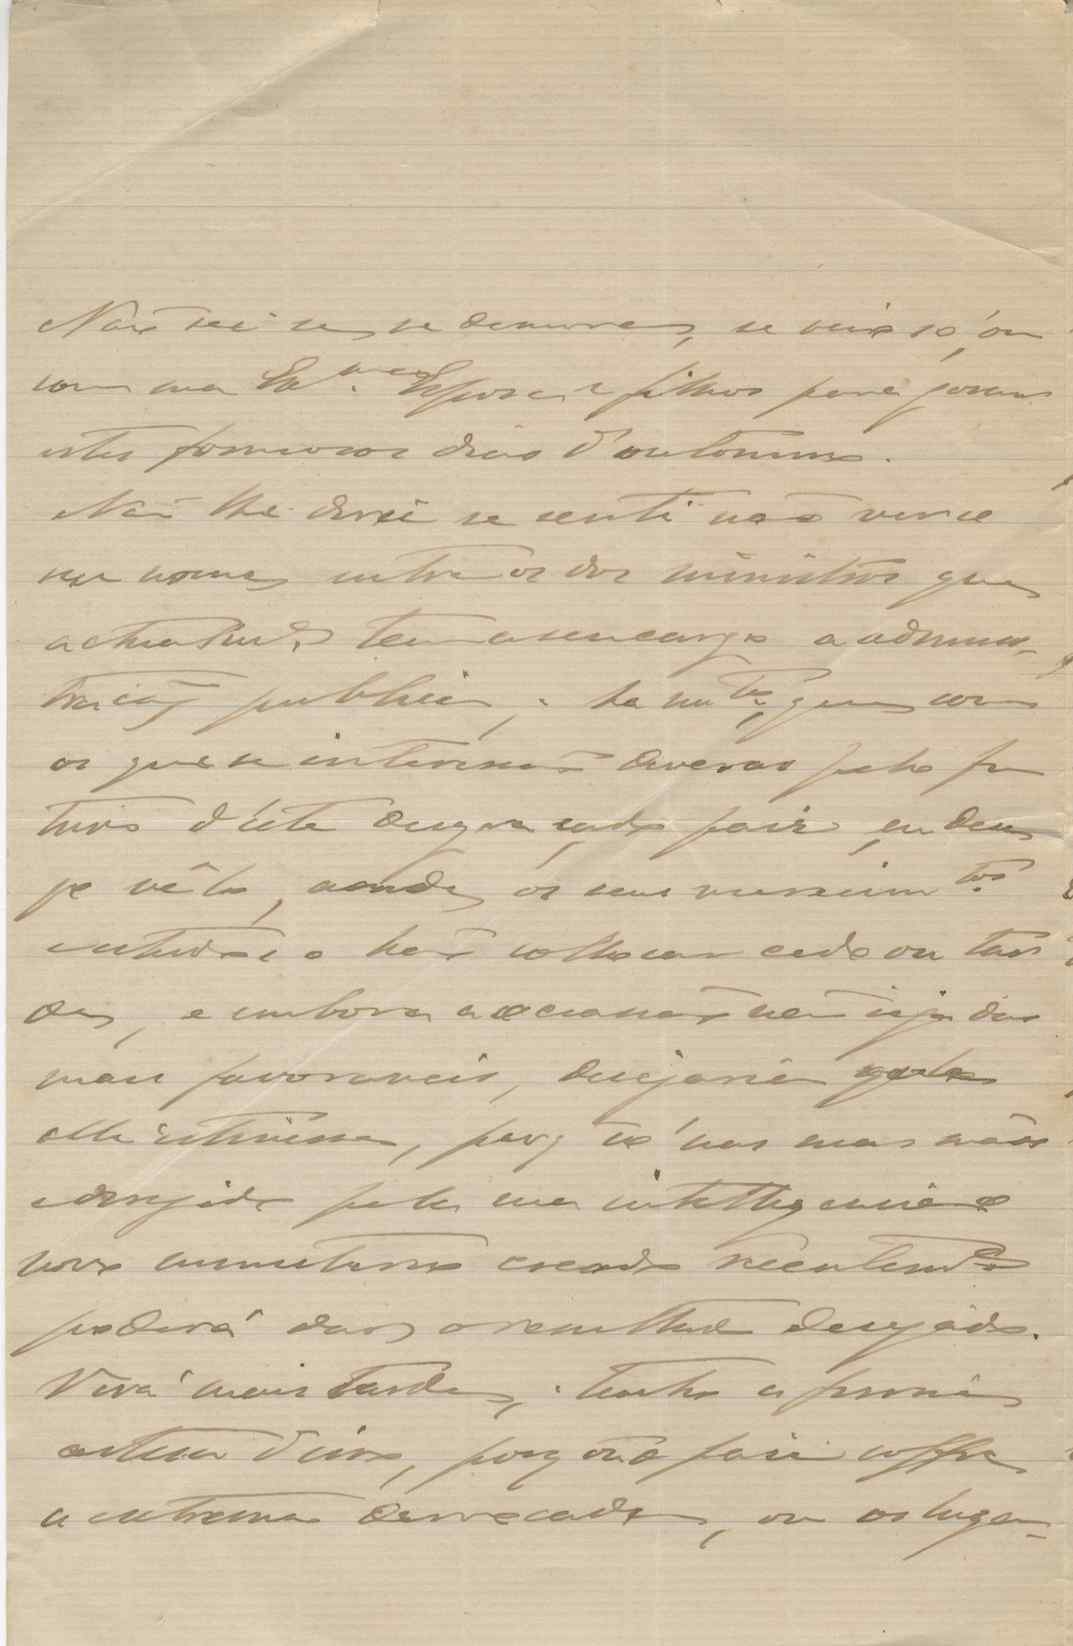 Não sei se se demora, se veio só, ou
com sua Ex.ma Esposa e filhos para gosar
estes formosos dias d'outomno.
Não lhe direi se senti não ver o
seu nome entre os dos ministros que
actualm.te tem a seu cargo a adminis-
tração publica; ha m.tos, que como
os que se interessão deveras pelo fu
turo d'este desgraçado paiz,
vêl-o, aonde os seus merecim.tos
estudos o hão collocar cedo ou tar
de, e embora a occasião não seja das
mais favoraveis, desejaria
elle estivesse, porq só nas suas mãos
e dirigido pela sua intelligencia o
novo ministerio creado recentem.te
poderá dar o resultado desejado.
Virá mais tarde, tenho a firme
certeza d'isso, porq ou o paiz soffre
a extrema derrocada, ou os luga-